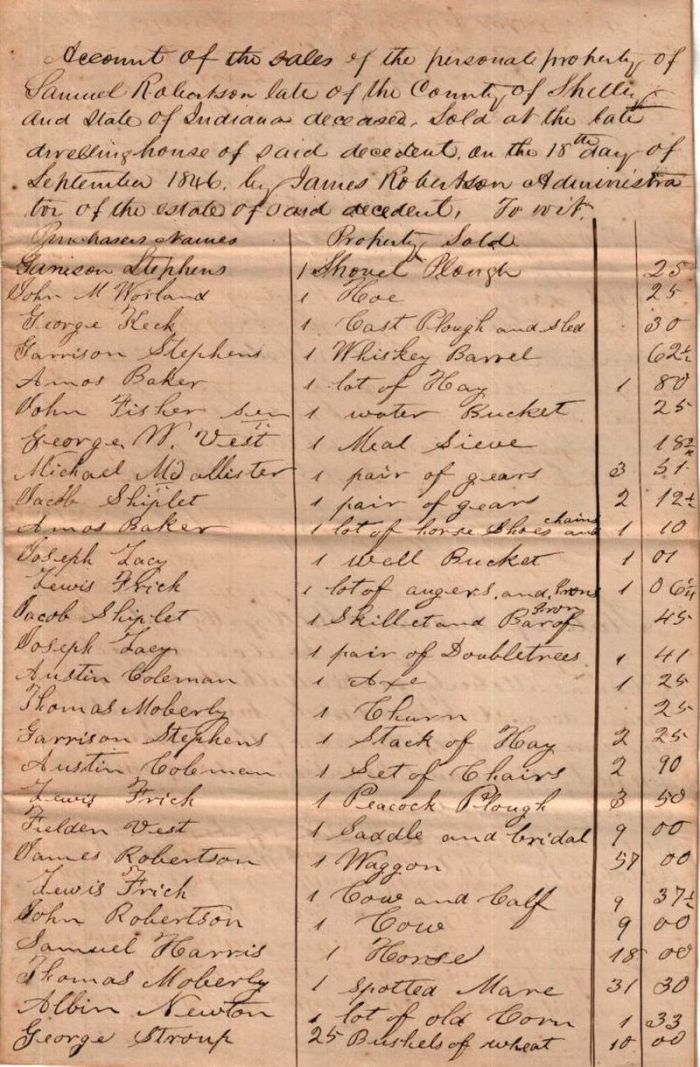 Account of the sales of the personal property of
Samuel Robertson late of the County of Shelby
and State of Indiana deceased, Sold at the late
dwelling house of said decedent, on the 18th day of
September 1846, by James Robertson Administra
tor of the estate of said decedent, To wit,
Purchasers Names Property Sold
Garrison Stephens 1 Shovel Plough 25
John M Worland 1 Hoe 25
George Keck 1 Cast Plough and sled 30
Garrison Stephens 1 Whiskey Barrel 62½
Amos Baker 1 lot of Hay 1 80
John Fisher sen 1 water Bucket 25
George W. Vest 1 Meal Sieve 18¾
Michael McCallister 1 pair of gears 3 51
Jacob Shiplet 1 pair of gears 2 12½
Amos Baker 1 lot of horse Shoes and chains 1 10
Joseph Lacy 1 well Bucket 1 01
Lewis Frich 1 lot of augers, and Irons 1 06¼
Jacob Shiplet 1 Skillet and Bar of Iron 45
Joseph Lacy 1 pair of Doubletrees 1 41
Austin Coleman 1 Axe 1 25
Thomas Moberly 1 Churn 25
Garrison Stephens 1 Stack of Hay 2 25
Austin Coleman 1 Set of Chairs 2 90
Lewis Frich 1 Peacock Plough 3 50
Fielden Vest 1 Saddle and bridal 9 00
James Robertson 1 Waggon 57 00
Lewis Frich 1 Cow and Calf 9 37½
John Robertson 1 Cow 9 00
Samuel Harris 1 Horse 18 00
Thomas Moberly 1 spotted Mare 31 30
Albin Newton 1 lot of old Corn 1 33
George Stroup 25 Bushels of wheat 10 00